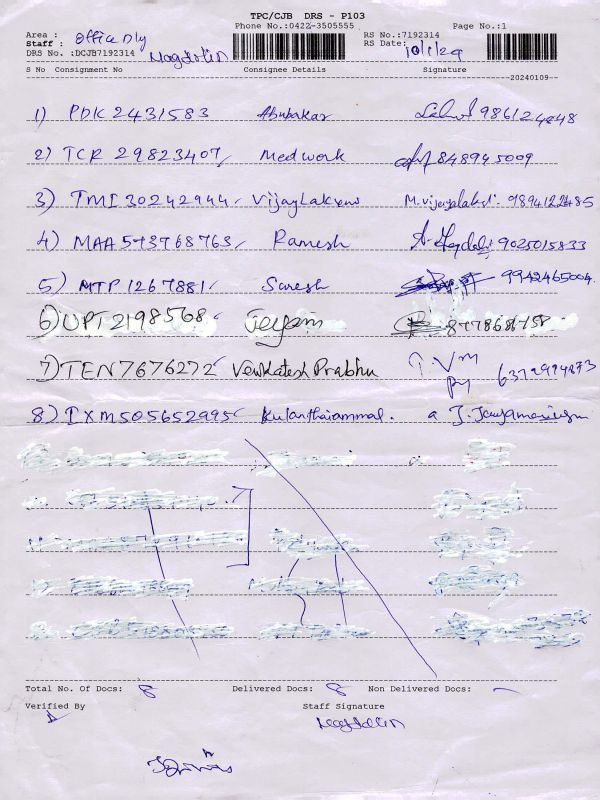 TPC/CJB DRS - P103
Phone No.:0422-3505555 Page No.:1
Area : Office Dly RS No.:7192314
Staff : Magdalin RS Date: 10/1/24
DRS No. :DCJB7192314
S No Consignment No Consignee Details Signature
20240109
1) PDK 2431583 Abubakar 986124848
2) TCR 29823407 Medwork 848945009
3) TMI 30242944 Vijaylakshmi M. Vijayalakshmi 9894122485
4) MAA 573768763 Ramesh 9025015833
5) MTP 1267881 Suresh 9942465004
6) UPT 2198568 Jeyam
7) TEN 7676272 Venkatesh Prabhu 6372994873
8) IXM505652995 Kulanthaiammal.
Total No. Of Docs: 8 Delivered Docs: 8 Non Delivered Docs: -
Verified By Staff Signature
Magdalin